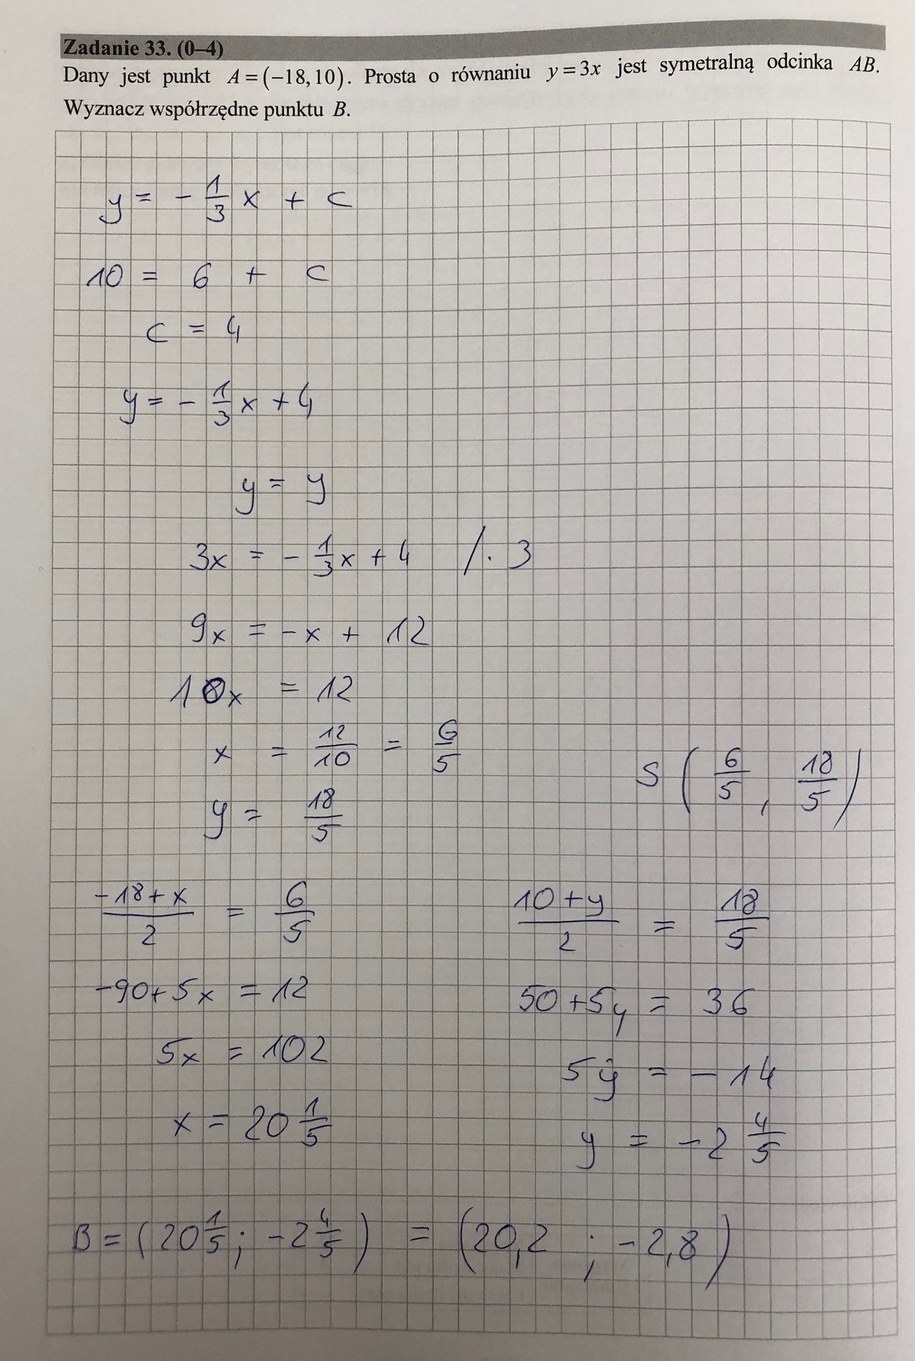 Zadanie 33. (0–4)
Dany jest punkt A = (−18, 10). Prosta o równaniu y = 3x jest symetralną odcinka AB.
Wyznacz współrzędne punktu B.
y = - 1/3 x + c
10 = 6 + c
c = 4
y = - 1/3 x + 4
y = y
3x = - 1/3 x + 4 /· 3
9x = -x + 12
10x = 12
x = 12/10 = 6/5
y = 18/5
S ( 6/5 , 18/5 )
(-18+x)/2 = 6/5
-90+5x = 12
5x = 102
x = 20 1/5
(10+y)/2 = 18/5
50+5y = 36
5y = -14
y = -2 4/5
B = (20 1/5 ; -2 4/5) = (20,2 ; -2,8)